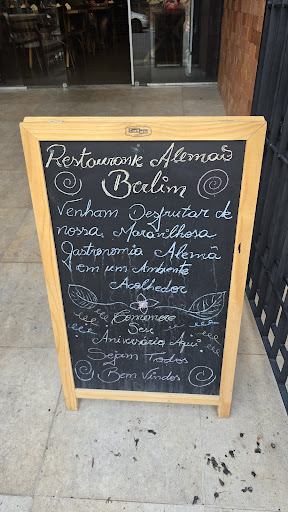 Restaurante Alemão
Berlim
Venham Desfrutar de
nossa Maravilhosa
Gastronomia Alemã
em um Ambiente
Acolhedor
Comemore
Seu
Aniversário Aqui!
Sejam Todos
Bem Vindos